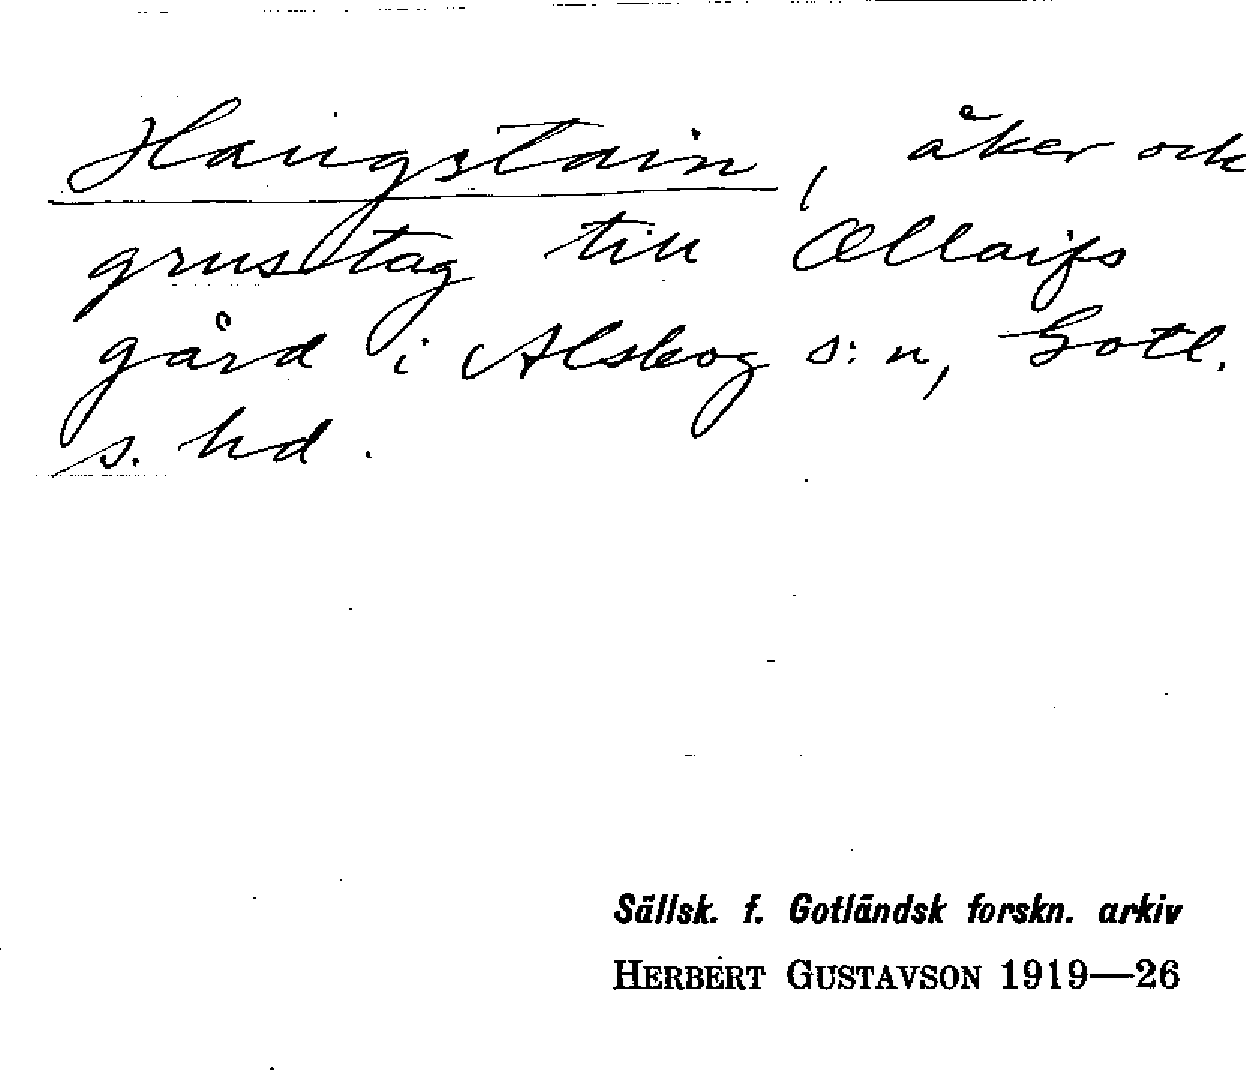 Haugstain, åker och
grustag till Ollaifs
gård i Alskog s:n, Gotl.
s. hd.
Sällsk. f. Gotländsk forskn. arkiv
HERBERT GUSTAVSON 1919—26